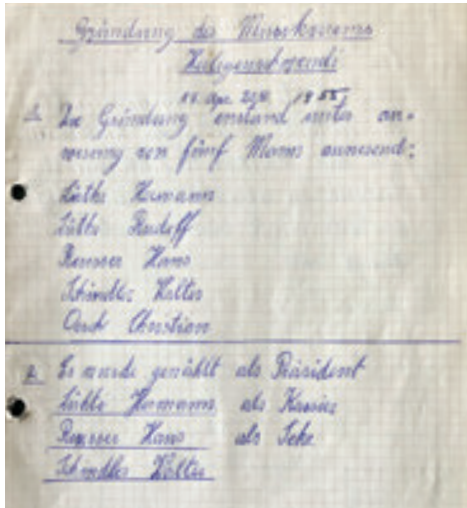 Gründung des Minorkvereins
Heiligenschwendi
1955
1. Die Gründung enstand unter an-
wesung von fünf Mann anwesend:
Lüthi Hermann
Lüthi Rudolf
Reusser Hans
Schindler Walter
Oesch Christian
2. Es wurde gewählt als Präsident
Lüthi Hermann als Kassier
Reusser Hans als Sekr.
Schindler Walter